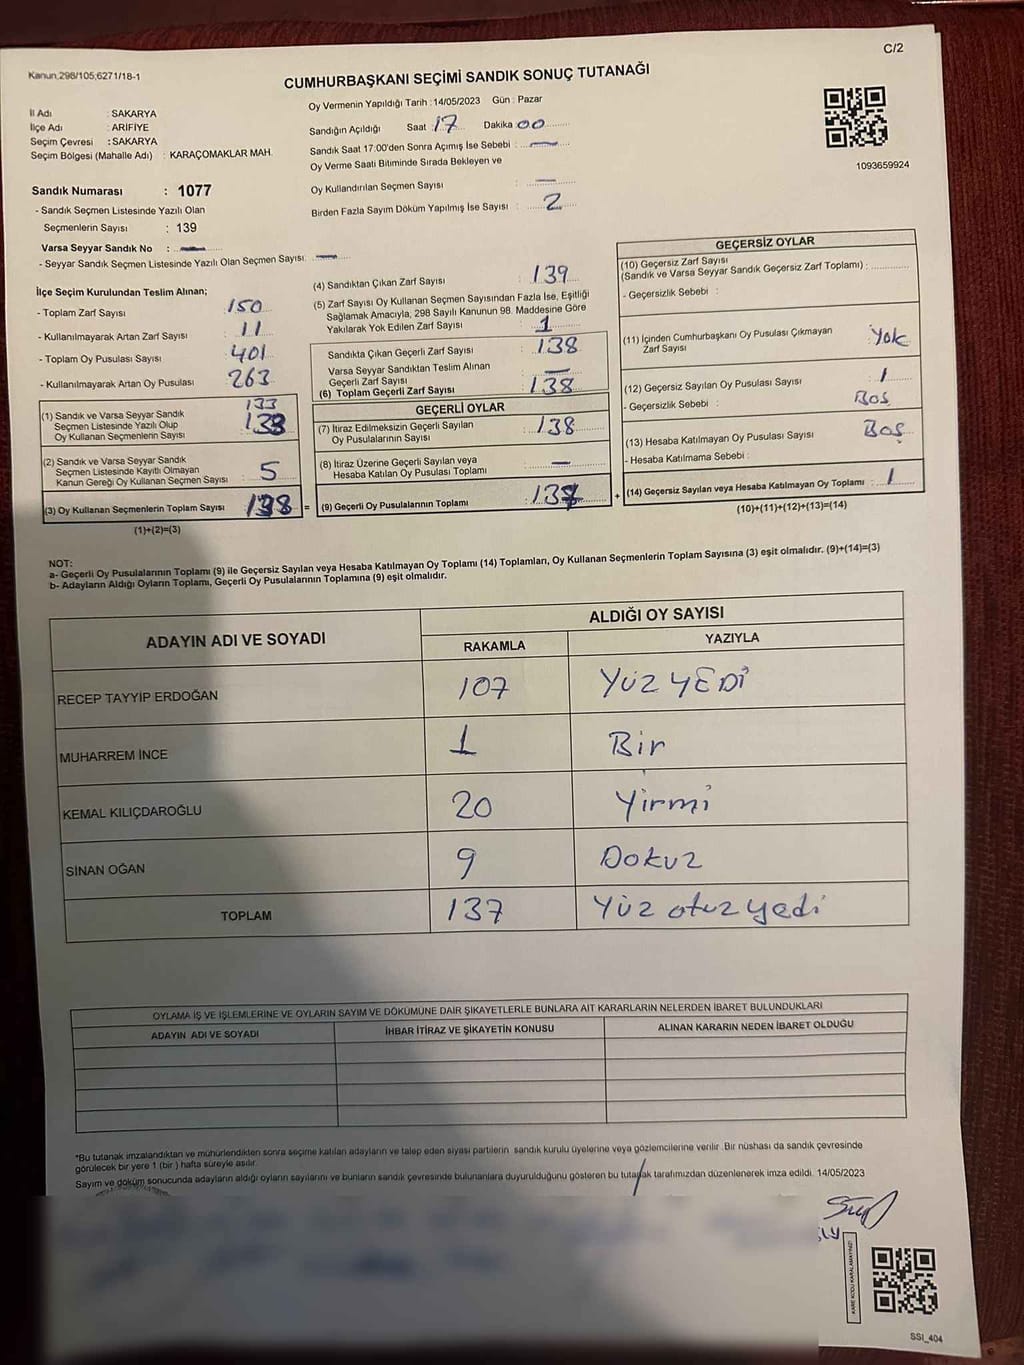 C/2
Kanun,298/105;6271/18-1
CUMHURBAŞKANI SEÇİMİ SANDIK SONUÇ TUTANAĞI
İl Adı : SAKARYA
İlçe Adı : ARİFİYE
Seçim Çevresi : SAKARYA
Seçim Bölgesi (Mahalle Adı) : KARAÇOMAKLAR MAH.
Oy Vermenin Yapıldığı Tarih : 14/05/2023 Gün : Pazar
Sandığın Açıldığı Saat : 17 Dakika 00
Sandık Saat 17:00'den Sonra Açımış İse Sebebi : —
Oy Verme Saati Bitiminde Sırada Bekleyen ve
Oy Kullandırılan Seçmen Sayısı : —
Birden Fazla Sayım Döküm Yapılmış İse Sayısı : 2
1093659924
Sandık Numarası : 1077
- Sandık Seçmen Listesinde Yazılı Olan
Seçmenlerin Sayısı : 139
Varsa Seyyar Sandık No : —
- Seyyar Sandık Seçmen Listesinde Yazılı Olan Seçmen Sayısı: —
İlçe Seçim Kurulundan Teslim Alınan;
- Toplam Zarf Sayısı : 150
- Kullanılmayarak Artan Zarf Sayısı : 11
- Toplam Oy Pusulası Sayısı : 401
- Kullanılmayarak Artan Oy Pusulası : 263
133
(1) Sandık ve Varsa Seyyar Sandık
Seçmen Listesinde Yazılı Olup
Oy Kullanan Seçmenlerin Sayısı
(2) Sandık ve Varsa Seyyar Sandık
Seçmen Listesinde Kayıtlı Olmayan
Kanun Gereği Oy Kullanan Seçmen Sayısı : 5
(3) Oy Kullanan Seçmenlerin Toplam Sayısı 138 =
(1)+(2)=(3)
(4) Sandıktan Çıkan Zarf Sayısı : 139
(5) Zarf Sayısı Oy Kullanan Seçmen Sayısından Fazla İse, Eşitliği
Sağlamak Amacıyla, 298 Sayılı Kanunun 98. Maddesine Göre
Yakılarak Yok Edilen Zarf Sayısı : 1
Sandıkta Çıkan Geçerli Zarf Sayısı : 138
Varsa Seyyar Sandıktan Teslim Alınan
Geçerli Zarf Sayısı : —
(6) Toplam Geçerli Zarf Sayısı : 138
GEÇERLİ OYLAR
(7) İtiraz Edilmeksizin Geçerli Sayılan
Oy Pusulalarının Sayısı : 138
(8) İtiraz Üzerine Geçerli Sayılan veya
Hesaba Katılan Oy Pusulası Toplamı : —
(9) Geçerli Oy Pusulalarının Toplamı : 137 +
GEÇERSİZ OYLAR
(10) Geçersiz Zarf Sayısı
(Sandık ve Varsa Seyyar Sandık Geçersiz Zarf Toplamı) :
- Geçersizlik Sebebi :
(11) İçinden Cumhurbaşkanı Oy Pusulası Çıkmayan
Zarf Sayısı : Yok
(12) Geçersiz Sayılan Oy Pusulası Sayısı : 1
- Geçersizlik Sebebi : Boş
(13) Hesaba Katılmayan Oy Pusulası Sayısı : Boş
- Hesaba Katılmama Sebebi :
(14) Geçersiz Sayılan veya Hesaba Katılmayan Oy Toplamı : 1
(10)+(11)+(12)+(13)=(14)
NOT:
a- Geçerli Oy Pusulalarının Toplamı (9) ile Geçersiz Sayılan veya Hesaba Katılmayan Oy Toplamı (14) Toplamları, Oy Kullanan Seçmenlerin Toplam Sayısına (3) eşit olmalıdır. (9)+(14)=(3)
b- Adayların Aldığı Oyların Toplamı, Geçerli Oy Pusulalarının Toplamına (9) eşit olmalıdır.
ADAYIN ADI VE SOYADI ALDIĞI OY SAYISI
RAKAMLA YAZIYLA
RECEP TAYYİP ERDOĞAN 107 YÜZ YEDİ
MUHARREM İNCE 1 Bir
KEMAL KILIÇDAROĞLU 20 Yirmi
SİNAN OĞAN 9 Dokuz
TOPLAM 137 Yüz otuz yedi
OYLAMA İŞ VE İŞLEMLERİNE VE OYLARIN SAYIM VE DÖKÜMÜNE DAİR ŞİKAYETLERLE BUNLARA AİT KARARLARIN NELERDEN İBARET BULUNDUKLARI
ADAYIN ADI VE SOYADI İHBAR İTİRAZ VE ŞİKAYETİN KONUSU ALINAN KARARIN NEDEN İBARET OLDUĞU
*Bu tutanak imzalandıktan ve mühürlendikten sonra seçime katılan adayların ve talep eden siyasi partilerin sandık kurulu üyelerine veya gözlemcilerine verilir. Bir nüshası da sandık çevresinde
görülecek bir yere 1 (bir) hafta süreyle asılır.
Sayım ve döküm sonucunda adayların aldığı oyların sayılarını ve bunların sandık çevresinde bulunanlara duyurulduğunu gösteren bu tutanak tarafımızdan düzenlenerek imza edildi. 14/05/2023
KARE KODU KARALAMAYINIZ!
SSI_404